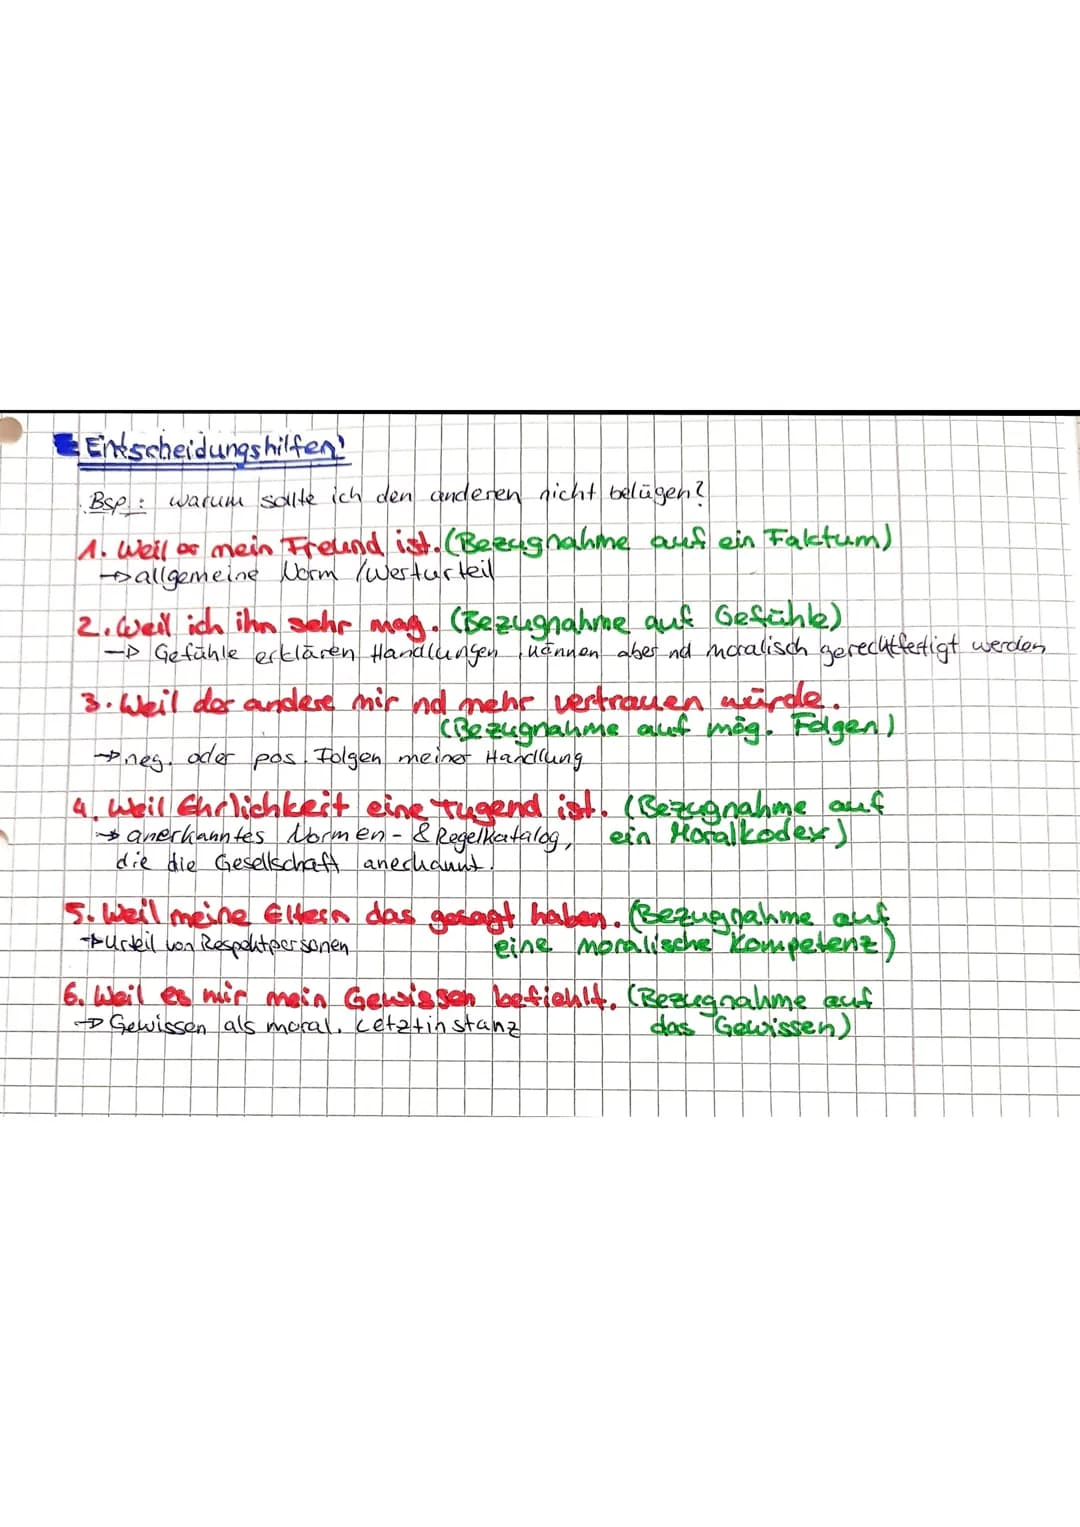 Entscheidungshilfen:
Bsp.: warum sollte ich den anderen nicht belügen?
1. Weil er mein Freund ist. (Bezugnahme auf ein Faktum)
→ allgemeine Norm / Werturteil
2. Weil ich ihn sehr mag. (Bezugnahme auf Gefühle)
→ Gefühle erklären Handlungen, können aber nd moralisch gerechtfertigt werden
3. Weil der andere mir nd mehr vertrauen würde.
(Bezugnahme auf mög. Folgen)
→ neg. oder pos. Folgen meiner Handlung
4. Weil Ehrlichkeit eine Tugend ist. (Bezugnahme auf
→ anerkanntes Normen- & Regelkatalog, ein Moralkodex)
die die Gesellschaft anerkannt.
5. Weil meine Eltern das gesagt haben. (Bezugnahme auf
→ Urteil von Respektpersonen eine moralische Kompetenz)
6. Weil es mir mein Gewissen befiehlt. (Bezugnahme auf
→ Gewissen als moral. Letztinstanz das Gewissen)